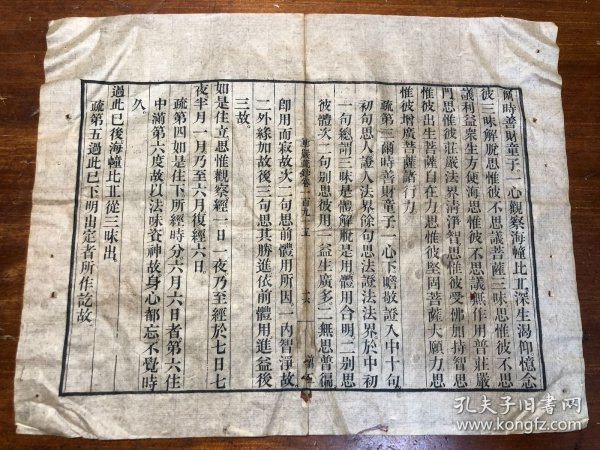 爾時善財童子一心觀察海幢比丘深生渴仰憶念
彼三昧解脫思惟彼不思議菩薩三昧思惟彼不思
議利益衆生方便海思惟彼不思議無作用普莊嚴
門思惟彼莊嚴法界清淨智思惟彼受佛加持智思
惟彼出生菩薩自在力思惟彼堅固菩薩大願力思
惟彼增廣菩薩諸行力
疏第三爾時善財童子一心下瞻敬證入中十句
初句思人證入法界餘句思法證法法界於中初
一句總謂三昧是體解脫是用體用合明二別思
彼體次二句別思彼用一益生廣多二無思普徧
卽用而寂故次二句思前體用所因一內智淨故
二外緣加故後三句思其勝進依前體用進益後
三故
如是住立思惟觀察經一日一夜乃至經於七日七
夜半月一月乃至六月復經六日
疏第四如是住下所經時分六月六日者第六住
中滿第六度故以法味資神故身心都忘不覺時
久
過此已後海幢比丘從三昧出
疏第五過此已下明出定者所作訖故
孔夫子旧书网
www.kongfz.com